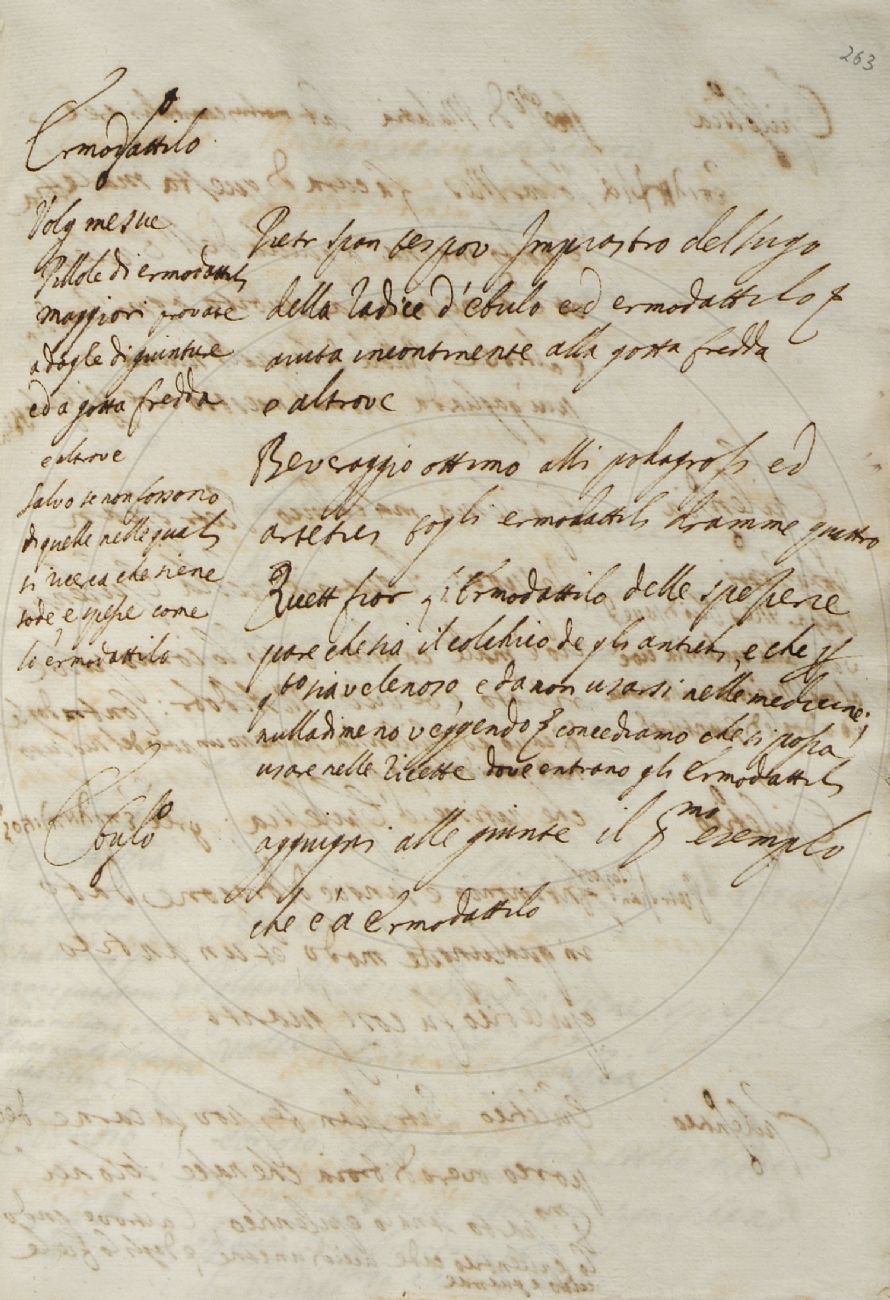 263
Ermodattilo
Volg mesue
Pillole di ermodattili
maggiori provate
a dogle di giunture
ed a gotta fredda
e altrove
salvo se non fossono
di quelle nelle quali
si ricerca che siene
sode, e spesse come
lo ermodattilo
Pietr span tes pov Impiastro del sugo
della radice d'ebulo ed ermodattilo
aiuta incontinente alla gotta fredda
e altrove
Beveraggio ottimo alli podagrosi ed
artetici togli ermodattili dramme quattro
Ricett fior l'Ermodattilo delle spezierie
pare che sia il colchico de gli antichi, e che
sia velenoso, e da non usarsi nelle medicine;
nulladimeno veggendo concediamo che si possa
usare nelle ricette dove entrano gli Ermodattili
Ebulo
aggiugni alle giunte il esemplo
che è a Ermodattilo